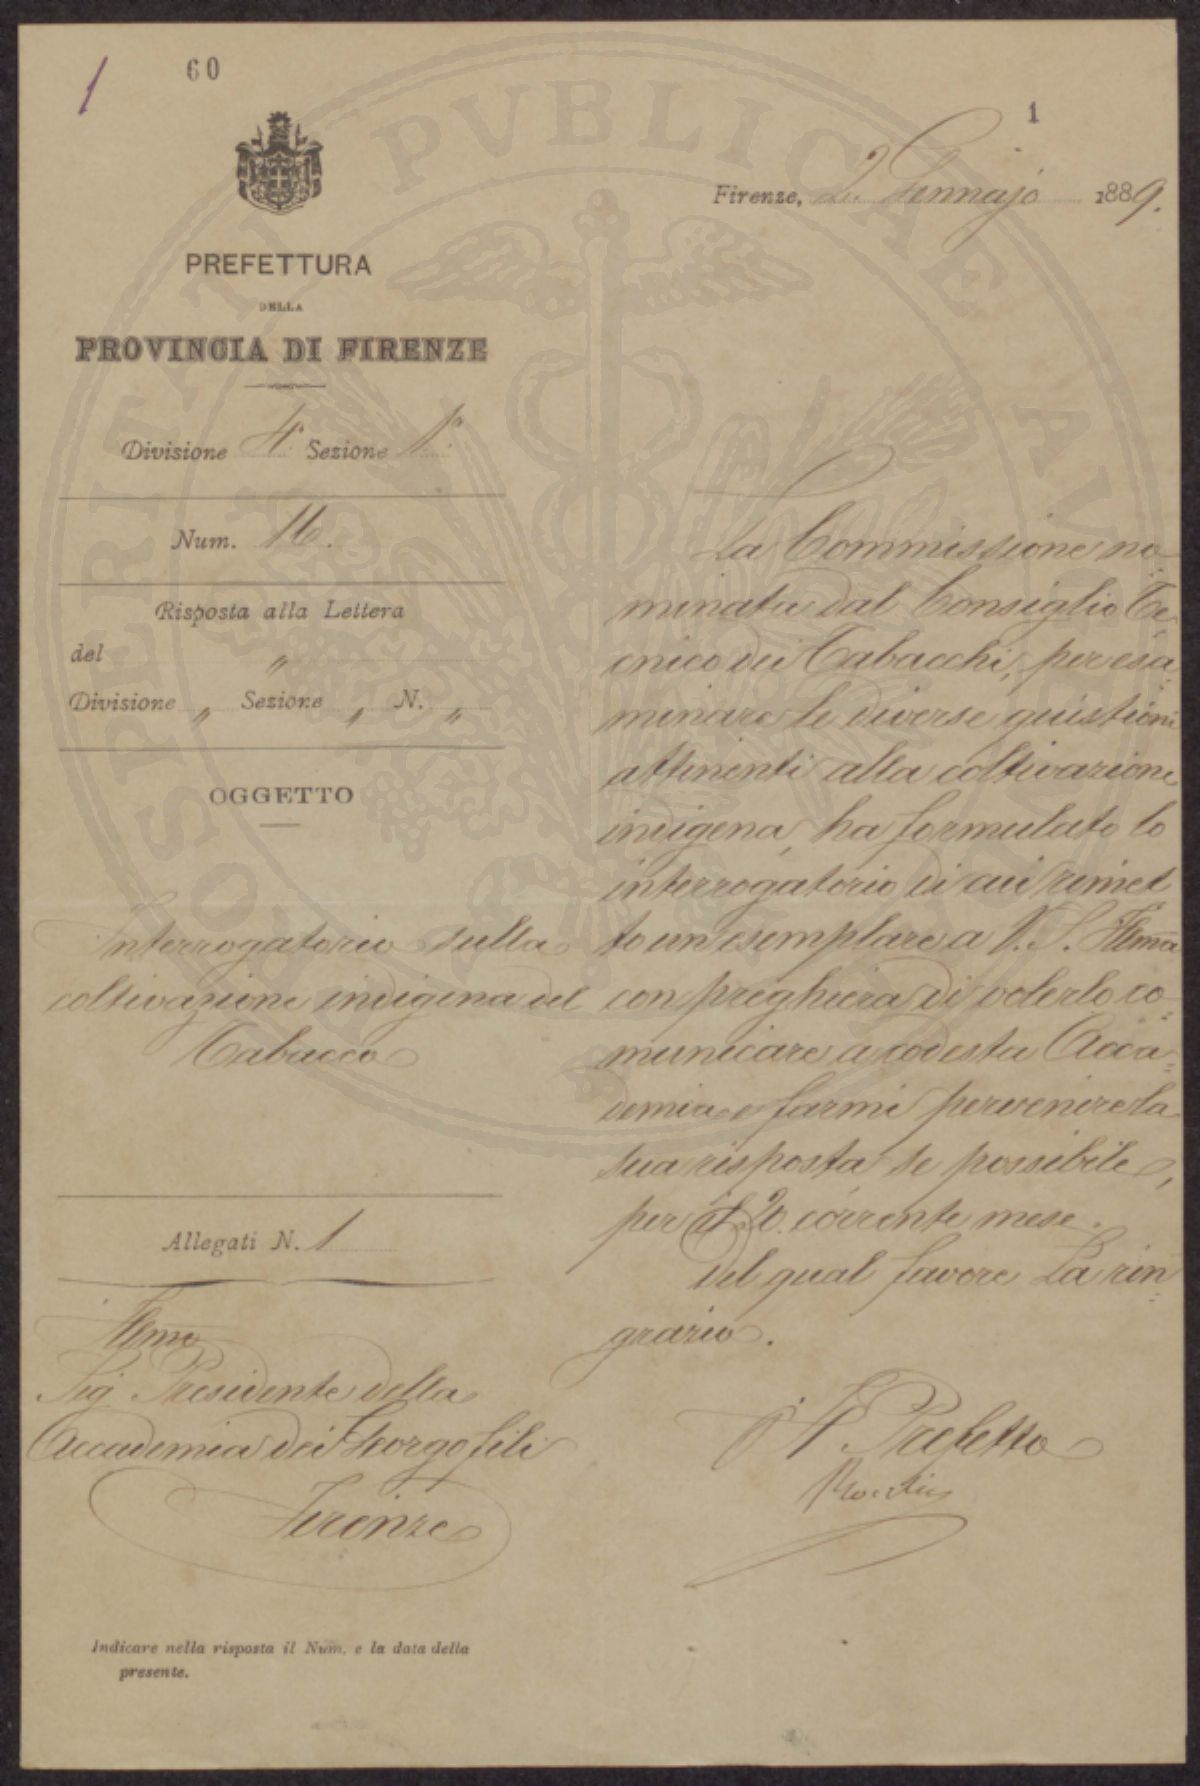 1
60
1
Firenze, 2. Gennajo 1889.
PREFETTURA
DELLA
PROVINCIA DI FIRENZE
Divisione 4ª Sezione 1ª
Num. 16.
Risposta alla Lettera
del "
Divisione " Sezione " N. "
OGGETTO
Interrogatorio sulla
coltivazione indigena del
Tabacco
Allegati N. 1
Illmo
Sig. Presidente della
Accademia dei Georgofili
Firenze
La Commissione no-
minata dal Consiglio Te-
cnico dei Tabacchi, per esa-
minare le diverse quistioni
attinenti alla coltivazione
indigena, ha formulato lo
interrogatorio di cui rimet
to un esemplare a V. S. Illma
con preghiera di volerlo co-
municare a codesta Acca-
demia e farmi pervenire la
sua risposta se possibile,
per il 20. corrente mese.
Del qual favore La rin-
grazio.
Il Prefetto
Indicare nella risposta il Num. e la data della
presente.
PROSPERITATI PVBLICAE AVGENDAE